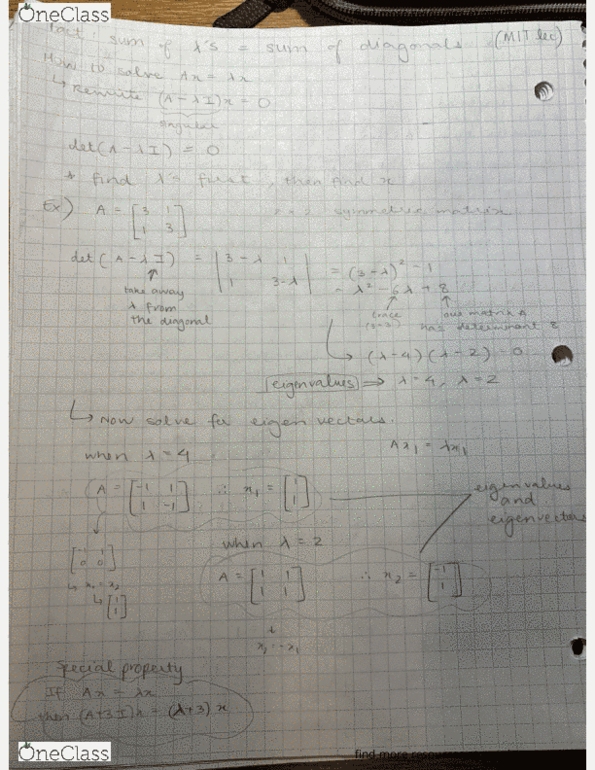 OneClass
Fact: sum of λ's = sum of diagonals (MIT lec)
How to solve Ax = λx
↳ Rewrite (A - λI)x = 0
singular
det(A - λI) = 0
* find λ's first, then find x
Ex) A = [3 1; 1 3] symmetric matrix
det(A - λI) = |3-λ 1; 1 3-λ| = (3-λ)² - 1
= λ² - 6λ + 8
↑ take away λ from the diagonal
↑ trace
↑ our matrix A has determinant 8
↳ (λ-4)(λ-2) = 0
eigenvalues ⇒ λ=4, λ=2
↳ Now solve for eigen vectors.
when λ = 4
Ax₁ = λx₁
A = [-1 1; 1 -1] ∴ x₁ = [1; 1]
eigenvalues and eigenvectors
[-1 1; 0 0]
↳ x₁ = x₂
↳ [1; 1]
when λ = 2
A = [1 1; 1 1] ∴ x₂ = [-1; 1]
Special property
If Ax = λx
then (A+3I)x = (λ+3)x
OneClass
find more